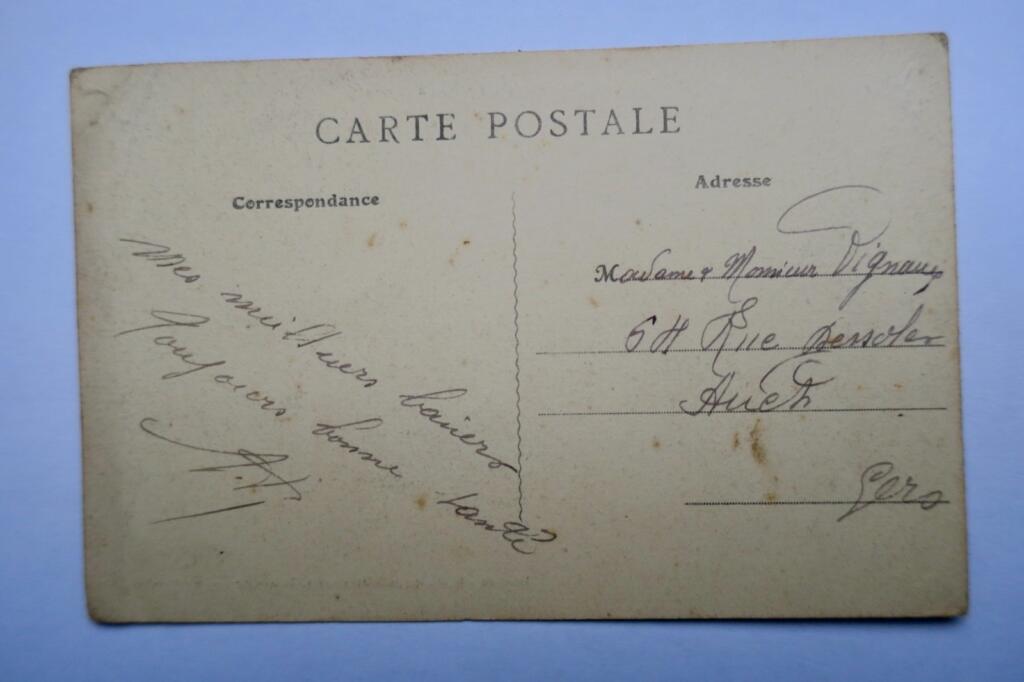 CARTE POSTALE
Correspondance
Mes meilleurs baisers
Toujours bonne santé
Adresse
Madame & Monsieur Vignaux
64 Rue Dessoles
Auch
Gers